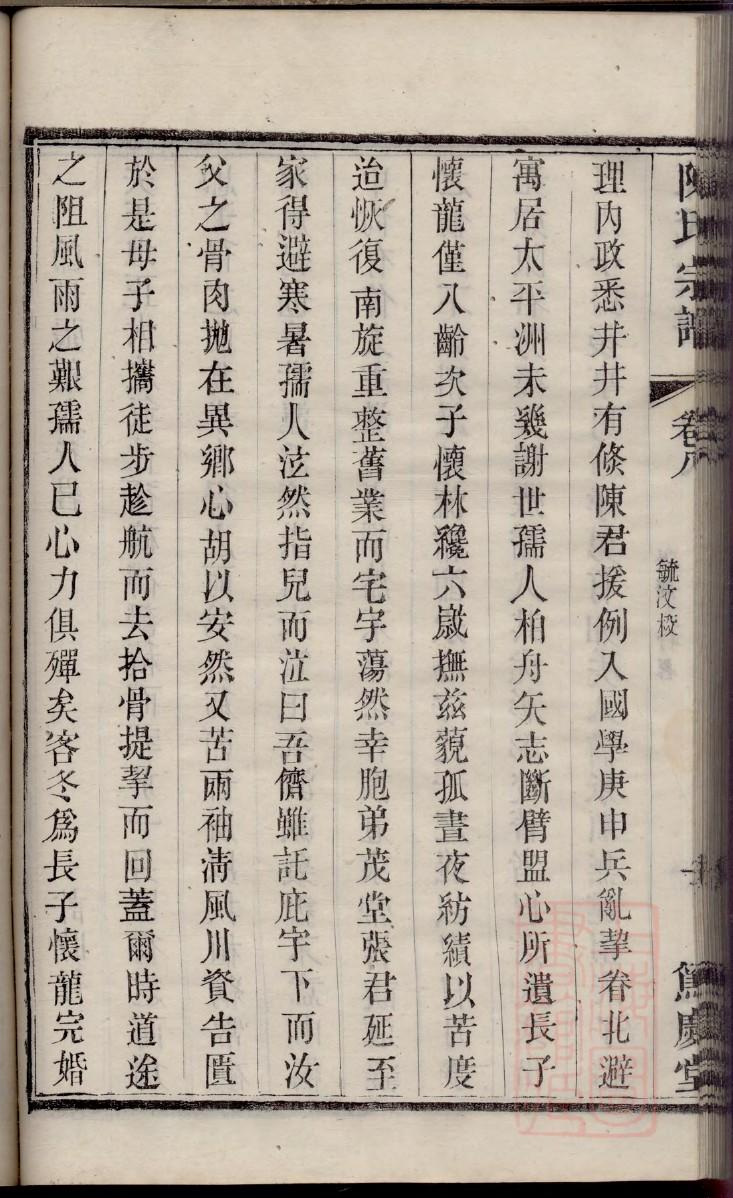 陳氏宗譜
卷八
毓汶校
篤慶堂
理內政悉井井有條陳君援例入國學庚申兵亂挈眷北避
寓居太平洲未幾謝世孺人柏舟矢志斷臂盟心所遺長子
懷龍僅八齡次子懷林纔六歲撫茲藐孤晝夜紡績以苦度
迨恢復南旋重整舊業而宅宇蕩然幸胞弟茂堂張君延至
家得避寒暑孺人泫然指兒而泣曰吾儕雖託庇宇下而汝
父之骨肉拋在異鄉心胡以安然又苦兩袖清風川資告匱
於是母子相攜徒步趁航而去拾骨提挈而回蓋爾時道途
之阻風雨之艱孺人已心力俱殫矣客冬為長子懷龍完婚